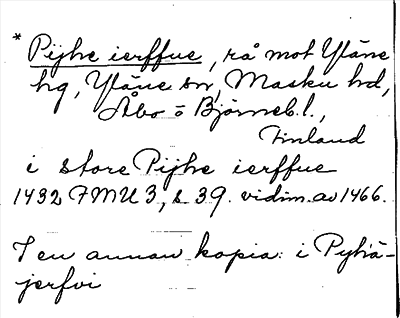 * Pijhe ierffue, rå mot Yläne
hg, Yläne sn, Masku hd,
Åbo o Björneb. l.,
Finland
i store Pijhe ierffue
1432 FMU 3, s 39. vidim. av 1466.
I en annan kopia: i Pyhä-
jerfvi